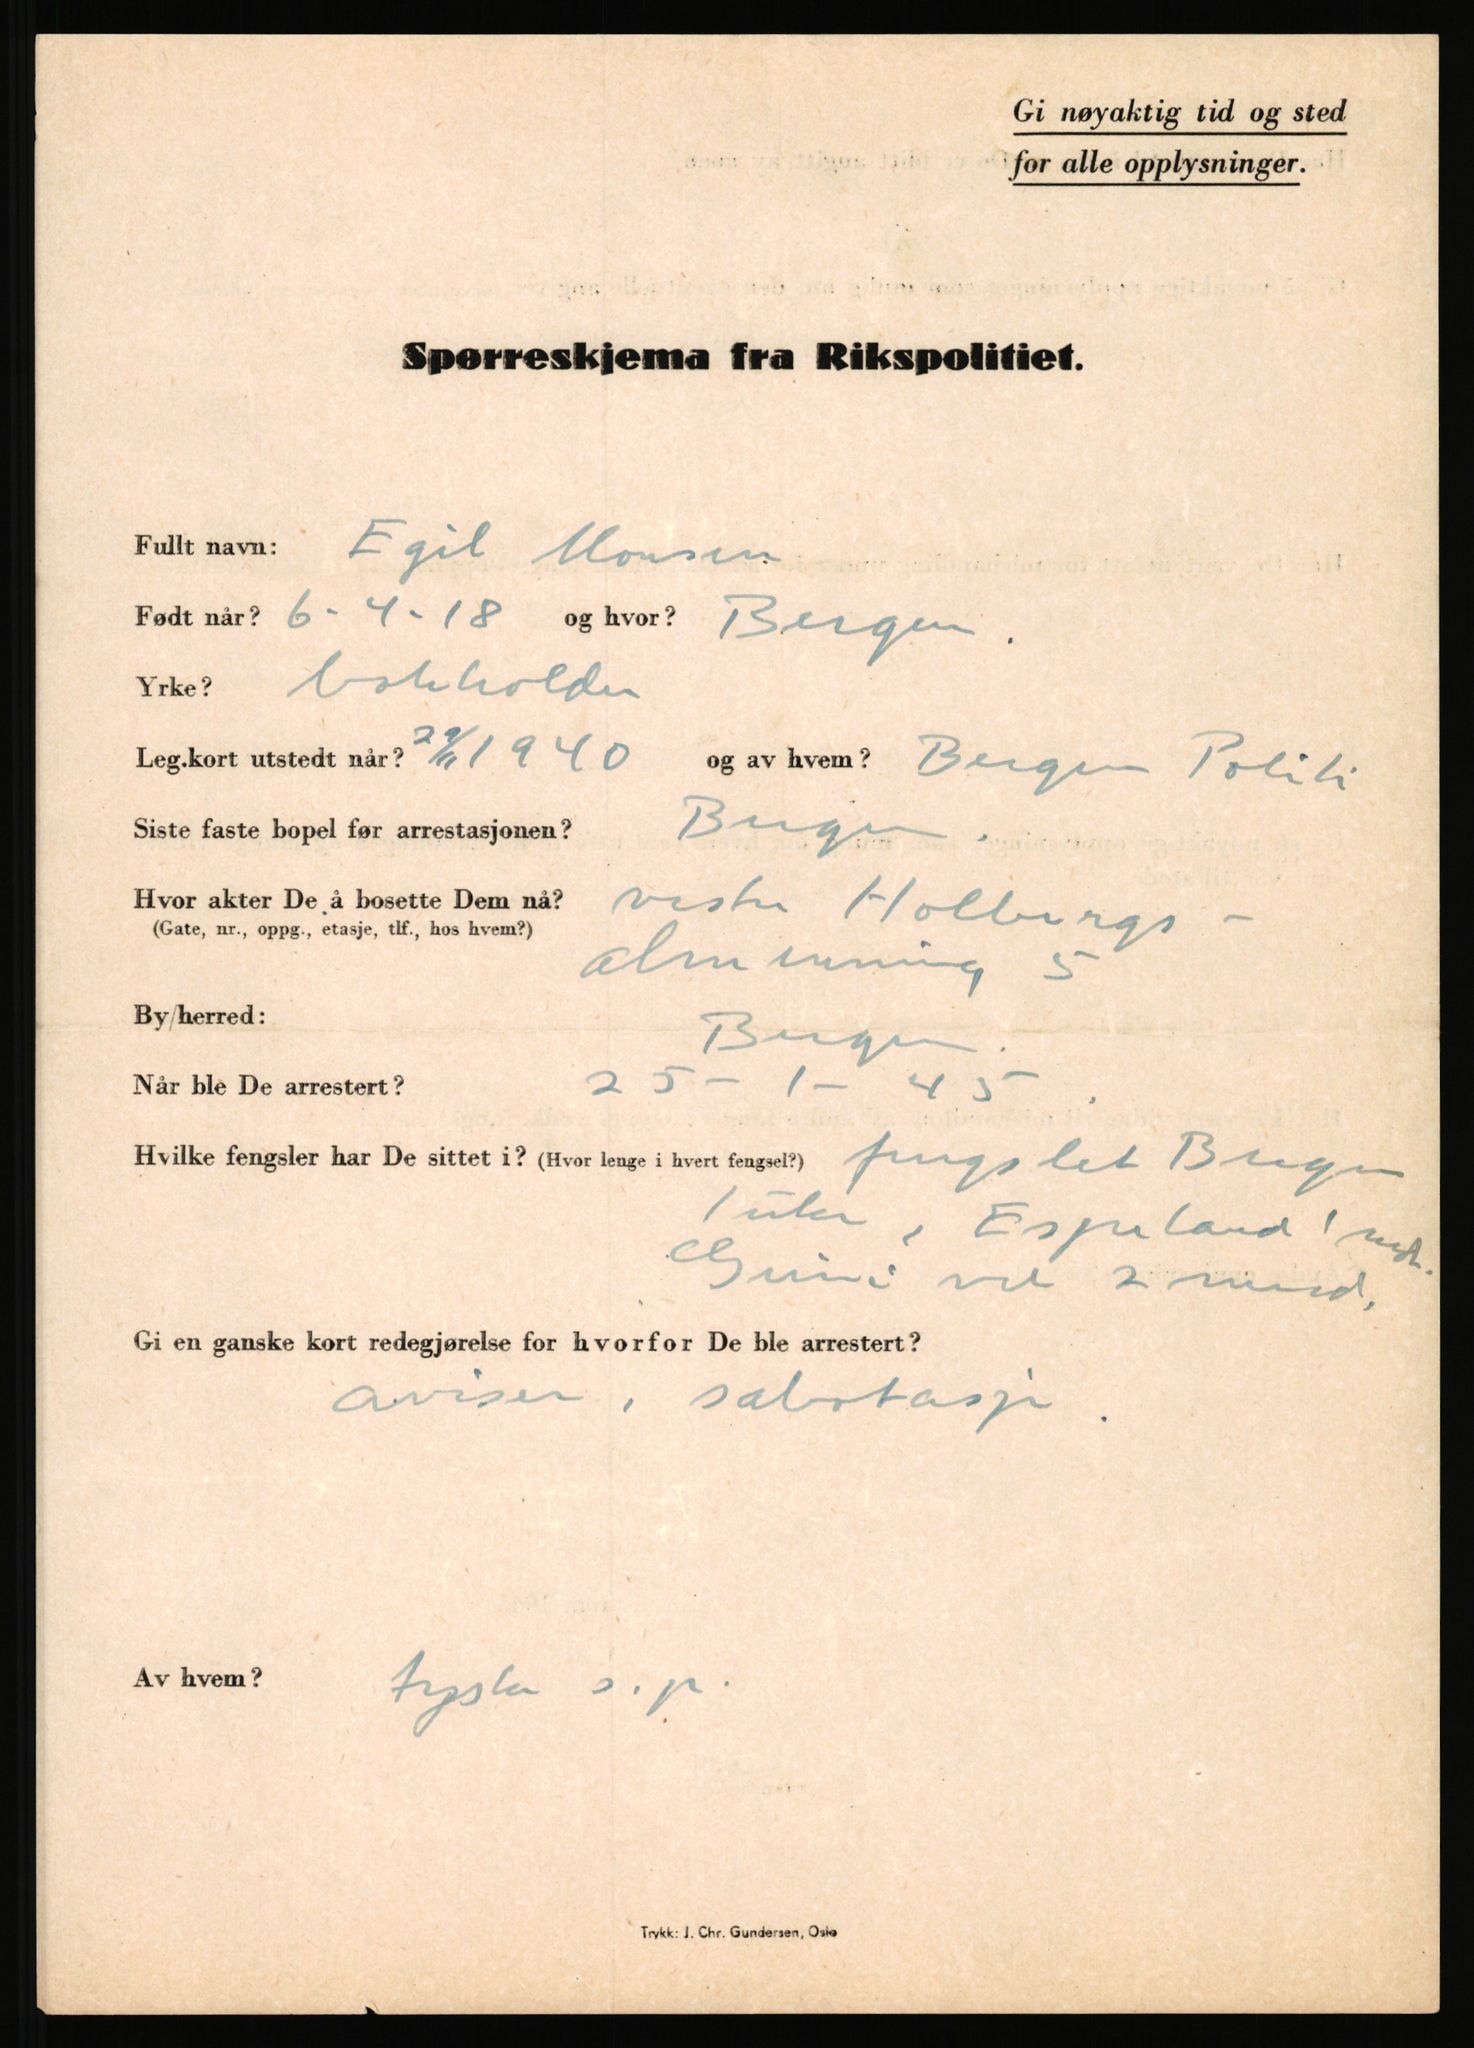 Gi nøyaktig tid og sted
for alle opplysninger.
Spørreskjema fra Rikspolitiet.
Fullt navn: Egil Monsen
Født når? 6-4-18 og hvor? Bergen.
Yrke? bokholder
Leg.kort utstedt når? 29/11 1940 og av hvem? Bergen Politi
Siste faste bopel før arrestasjonen? Bergen.
Hvor akter De å bosette Dem nå? vestre Holbergs-
(Gate, nr., oppg., etasje, tlf., hos hvem?)
almenning 5
By/herred: Bergen.
Når ble De arrestert? 25-1-45.
Hvilke fengsler har De sittet i? (Hvor lenge i hvert fengsel?) fengslet Bergen
1 uke, Espeland 1 mdr.
Grini vel 2 mnd.
Gi en ganske kort redegjørelse for hvorfor De ble arrestert?
aviser, sabotasje.
Av hvem? tyske s.p.
Trykk: J. Chr. Gundersen, Oslo